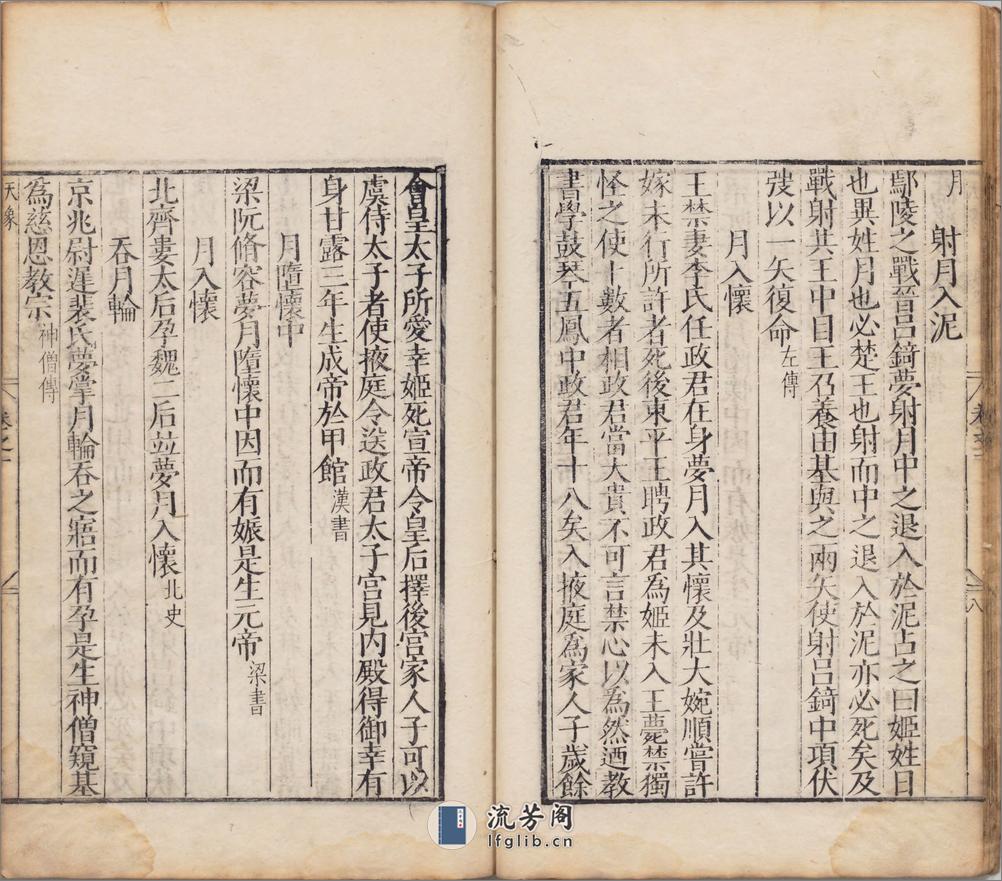 月
射月入泥
鄢陵之戰晉呂錡夢射月中之退入於泥占之曰姬姓日
也異姓月也必楚王也射而中之退入於泥亦必死矣及
戰射其王中目王召養由基與之兩矢使射呂錡中項伏
弢以一矢復命左傳
月入懷
王禁妻李氏任政君在身夢月入其懷及壯大婉順嘗許
嫁未行所許者死後東平王聘政君為姬未入王薨禁獨
怪之使卜數者相政君當大貴不可言禁心以為然迺教
書學鼓琴五鳳中政君年十八矣入掖庭為家人子歲餘
會皇太子所愛幸姬死宣帝令皇后擇後宮家人子可以
虞侍太子者使掖庭令送政君太子宮見内殿得御幸有
身甘露三年生成帝於甲館漢書
月墮懷中
梁阮脩容夢月墮懷中因而有娠是生元帝梁書
月入懷
北齊婁太后孕魏二后竝夢月入懷北史
吞月輪
京兆尉遲裴氏夢掌月輪吞之寤而有孕是生神僧窺基
為慈恩教宗神僧傳
天象
卷之一
流芳阁
lfglib.cn